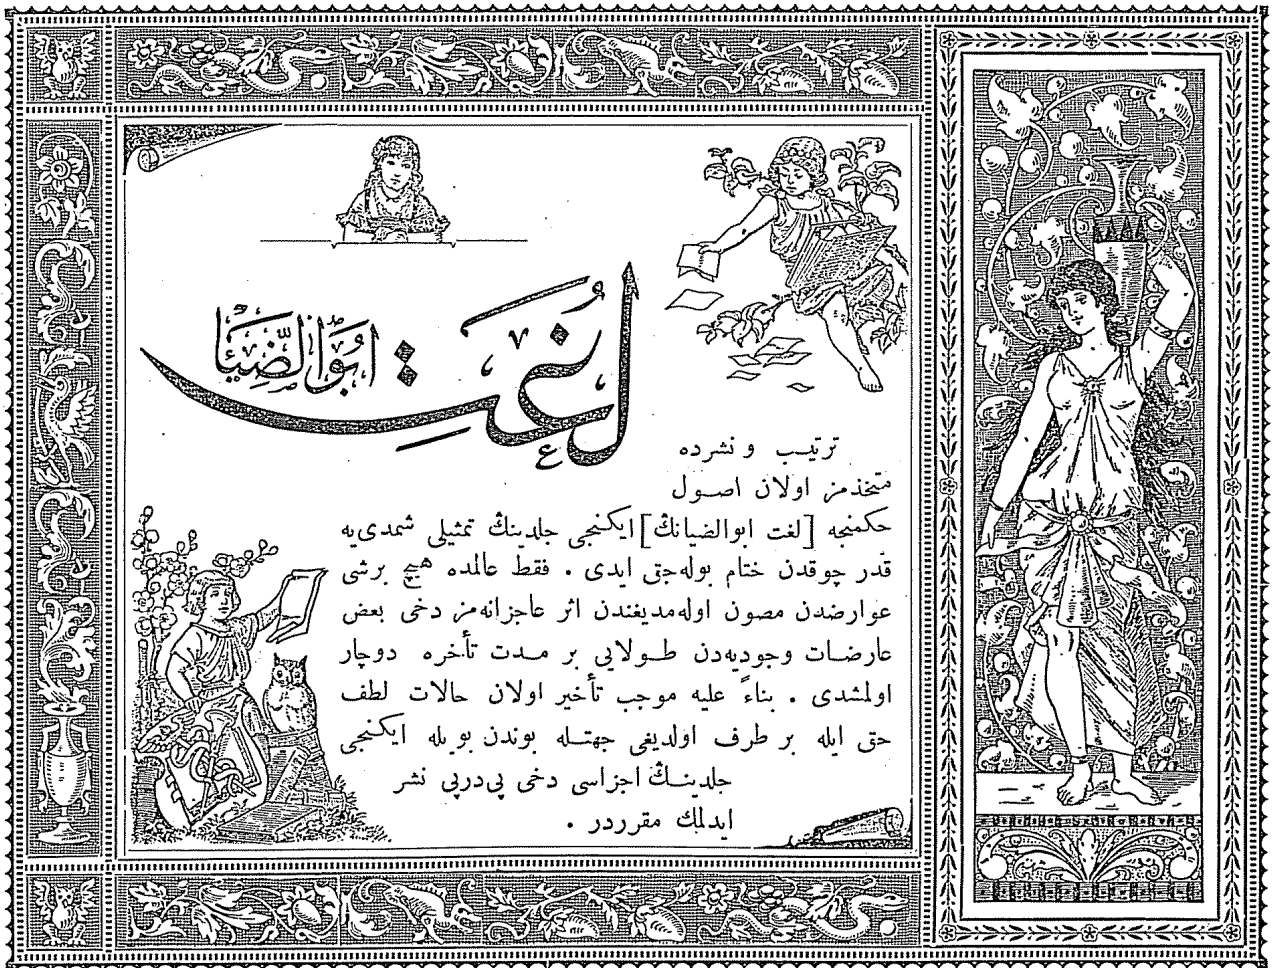 لغت
ابوالضيا
ترتيب و نشرده
متخذمز اولان اصول
حكمنجه [لغت ابوالضيانڭ] ايكنجى جلدينڭ تمثيلى شمدى‌يه
قدر چوقدن ختام بوله‌جق ايدى . فقط عالمده هيچ برشى
عوارضدن مصون اوله‌مديغندن اثر عاجزانه‌مز دخى بعض
عارضات وجوديه‌دن طولايى بر مدت تأخره دوچار
اولمشدى . بناءً عليه موجب تأخير اولان حالات لطف
حق ايله بر طرف اولديغى جهتله بوندن بويله ايكنجى
جلدينڭ اجزاسى دخى پى‌درپى نشر
ايدلمك مقرردر .